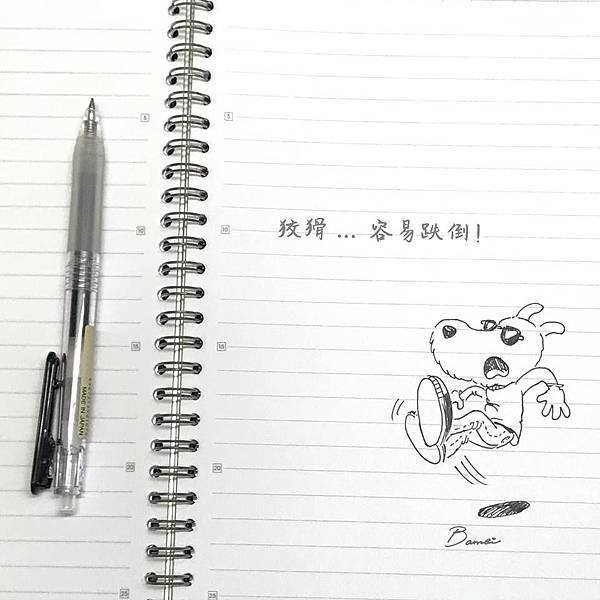 狡猾... 容易跌倒!
MADE IN JAPAN
5
5
10
10
15
15
20
20
25
25